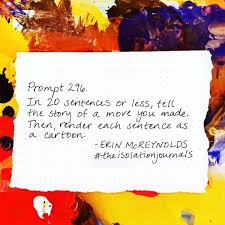 Prompt 296.
In 20 sentences or less, tell
the story of a move you made.
Then, render each sentence as
a cartoon.
-ERIN McREYNOLDS
#theisolationjournals